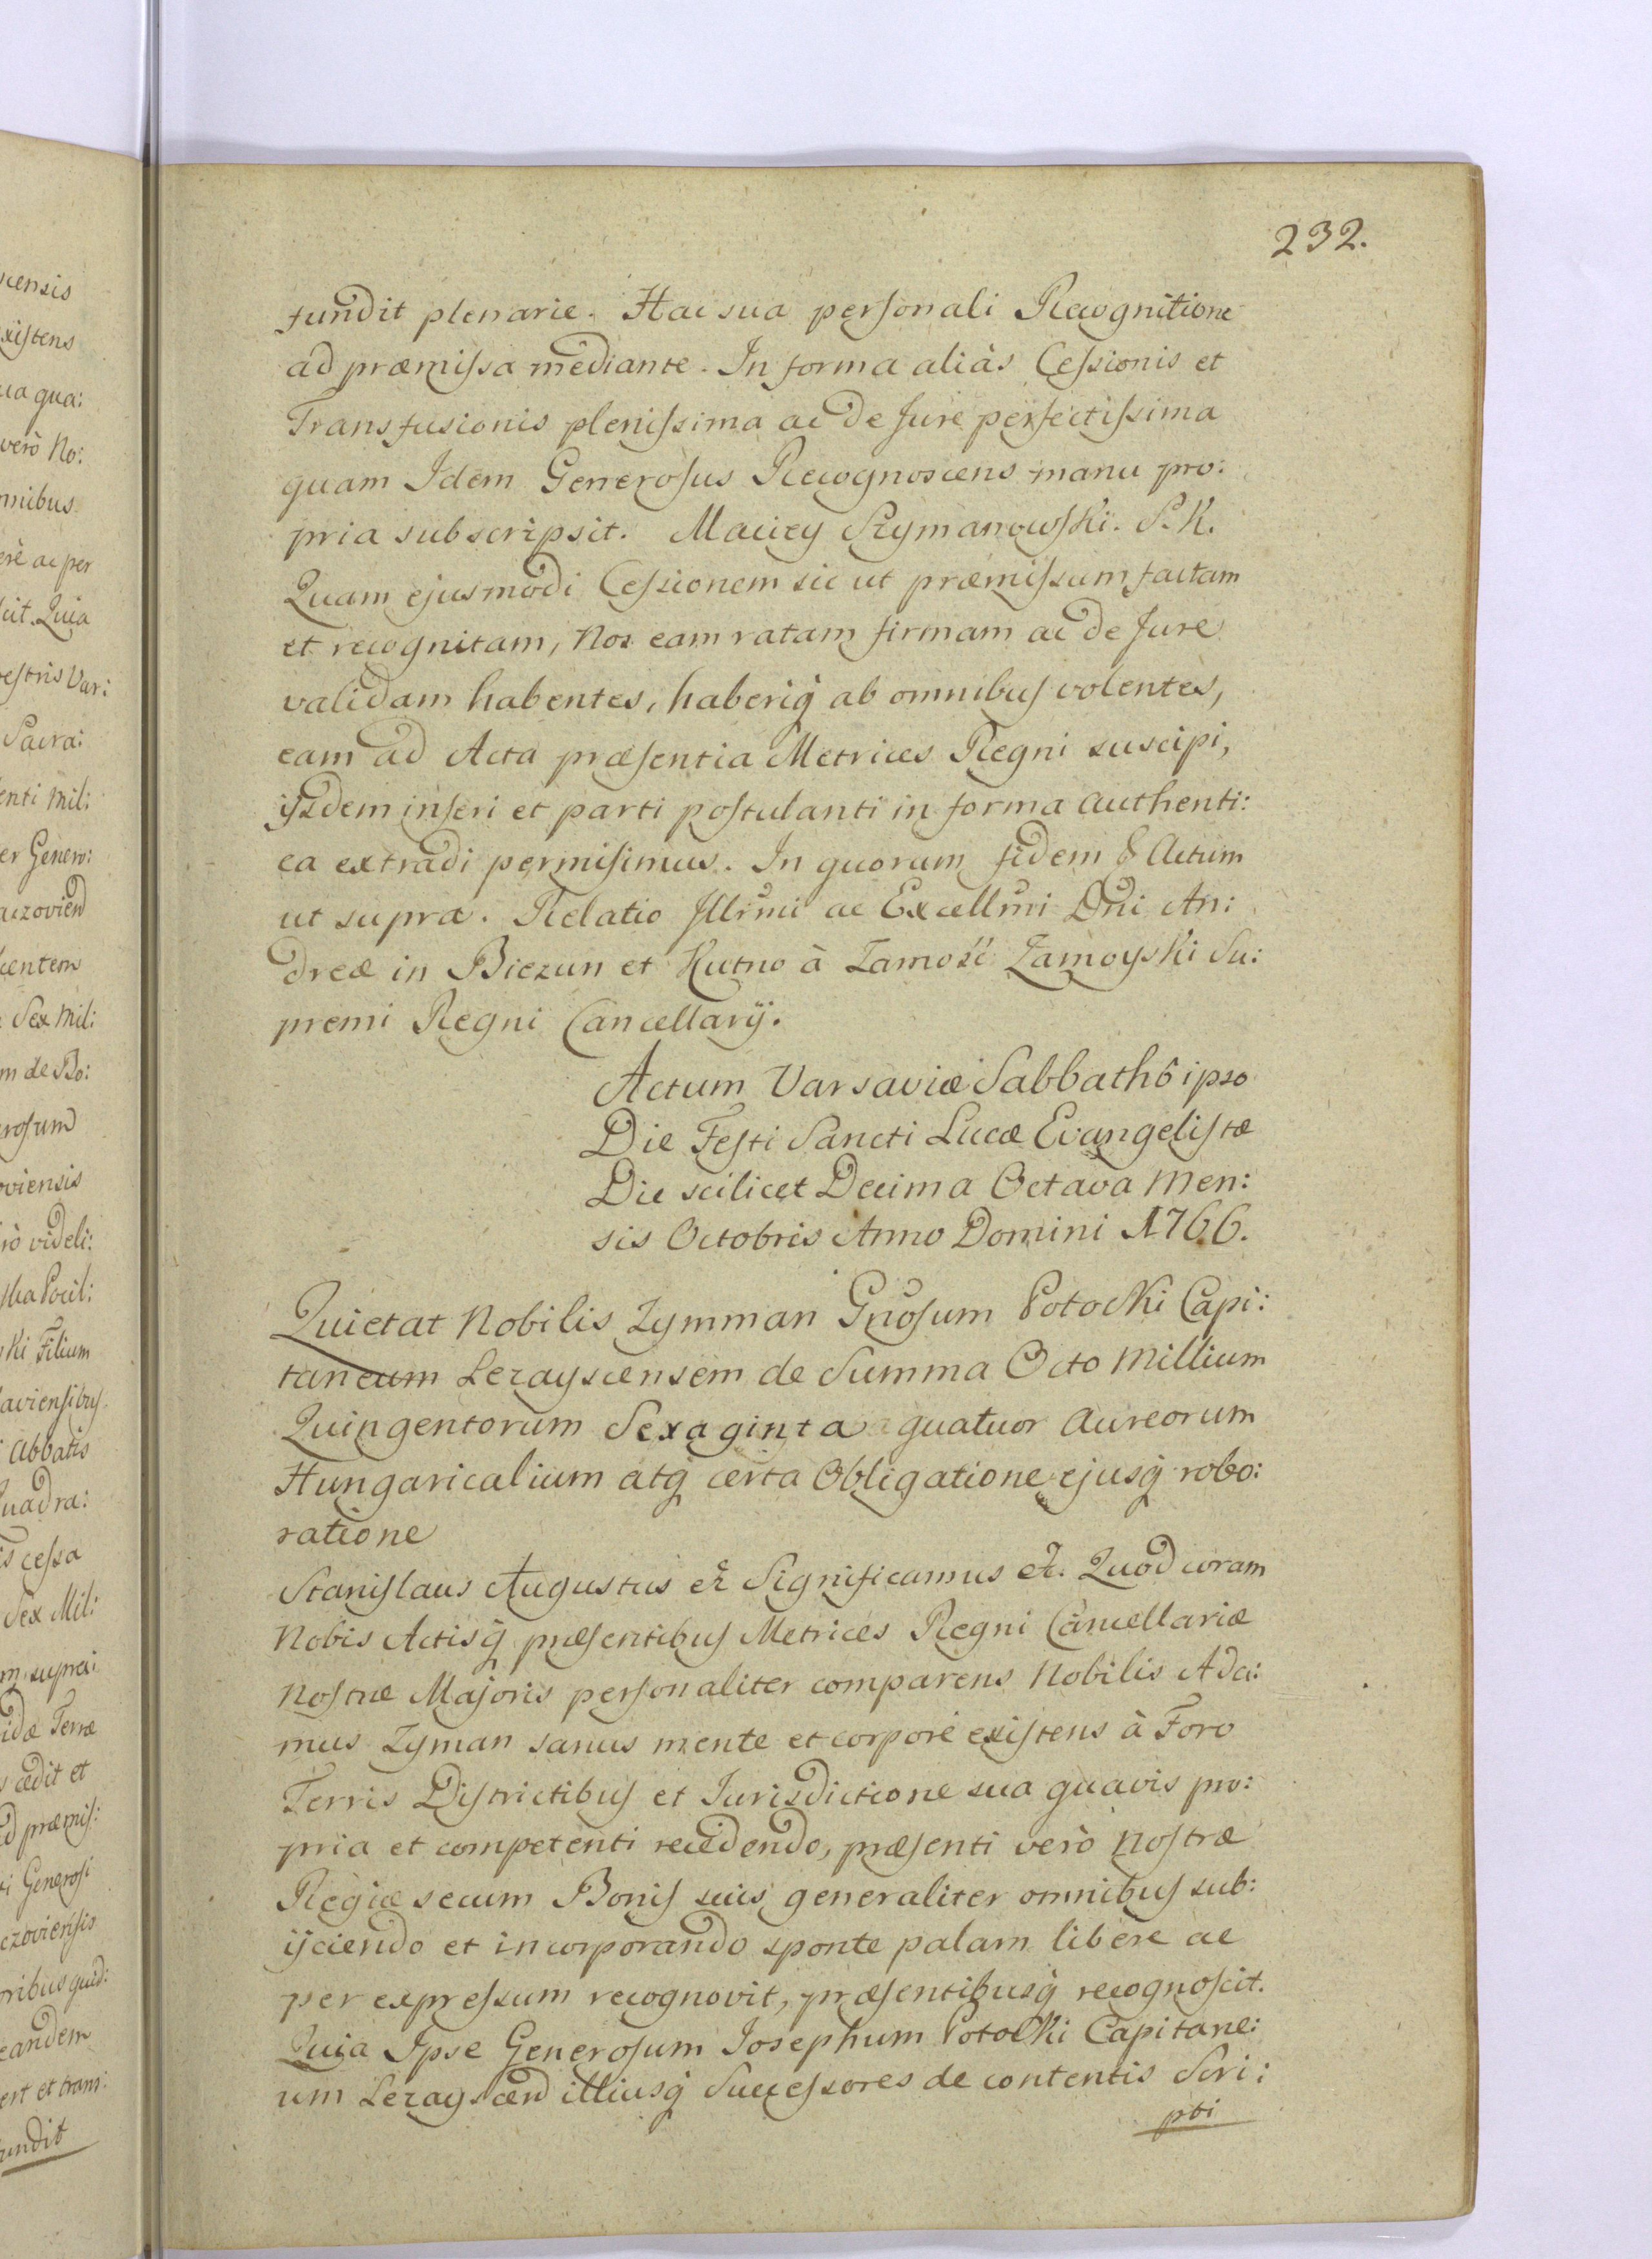 232.
fundit plenarie. Hac sua personali Recognitione
ad præmissa mediante. In forma aliàs Cessionis et
Transfusionis plenissima ac de Jure perfectissima
quam Idem Generosus Recognoscens manu pro:
pria subscripsit. Maciey Szymanowski. S. K.
Quam ejusmodi Cessionem sic ut præmissum factam
et recognitam, Nos eam ratam firmam ac de Jure
validam habentes, haberiq̃ ab omnibus volentes,
eam ad Acta præsentia Metrices Regni suscipi,
ijsdem inseri et parti postulanti in forma authenti:
ca extradi permisimus. In quorum fidem & Actum
ut supra. Relatio Illrmi ac Excellmi Dni An:
dreæ in Biezun et Kutno à Zamość Zamoyski Su:
premi Regni Cancellarij.
Actum Varsaviæ Sabbathô ipso
Die Festi Sancti Lucæ Evangelistæ
Die scilicet Decima Octava Men:
sis Octobris Anno Domini 1766.
Quietat Nobilis Zymman Gnosum Potocki Capi:
taneum Lezayscensem de Summa Octo Millium
Quingentorum Sexaginta quatuor Aureorum
Hungaricalium atq̃ certa Obligatione ejusq̃ robo:
ratione
Stanislaus Augustus et Significamus et. Quod coram
Nobis Actisq̃ præsentibus Metrices Regni Cancellariæ
Nostræ Majoris personaliter comparens Nobilis Ada:
mus Zyman sanus mente et corpore existens à Foro
Terris Districtibus et Jurisdictione sua quavis pro:
pria et competenti recedendo, præsenti verò Nostræ
Regiæ secum Bonis suis generaliter omnibus sub:
ijciendo et incorporando sponte palam libere ac
per expressum recognovit, præsentibusq̃ recognoscit.
Quia Ipse Generosum Josephum Potocki Capitane:
um Lezayscen illiusq̃ Successores de contentis Scri:
pti